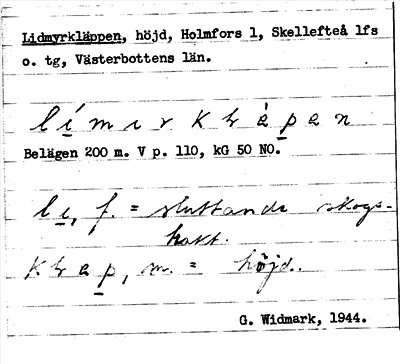 Lidmyrkläppen, höjd, Holmfors 1, Skellefteå lfs
o. tg, Västerbottens län.
límırklèpen
Belägen 200 m. V p. 110, kG 50 NO.
lı, f. = sluttande skogs-
trakt.
klep, m. = höjd.
G. Widmark, 1944.